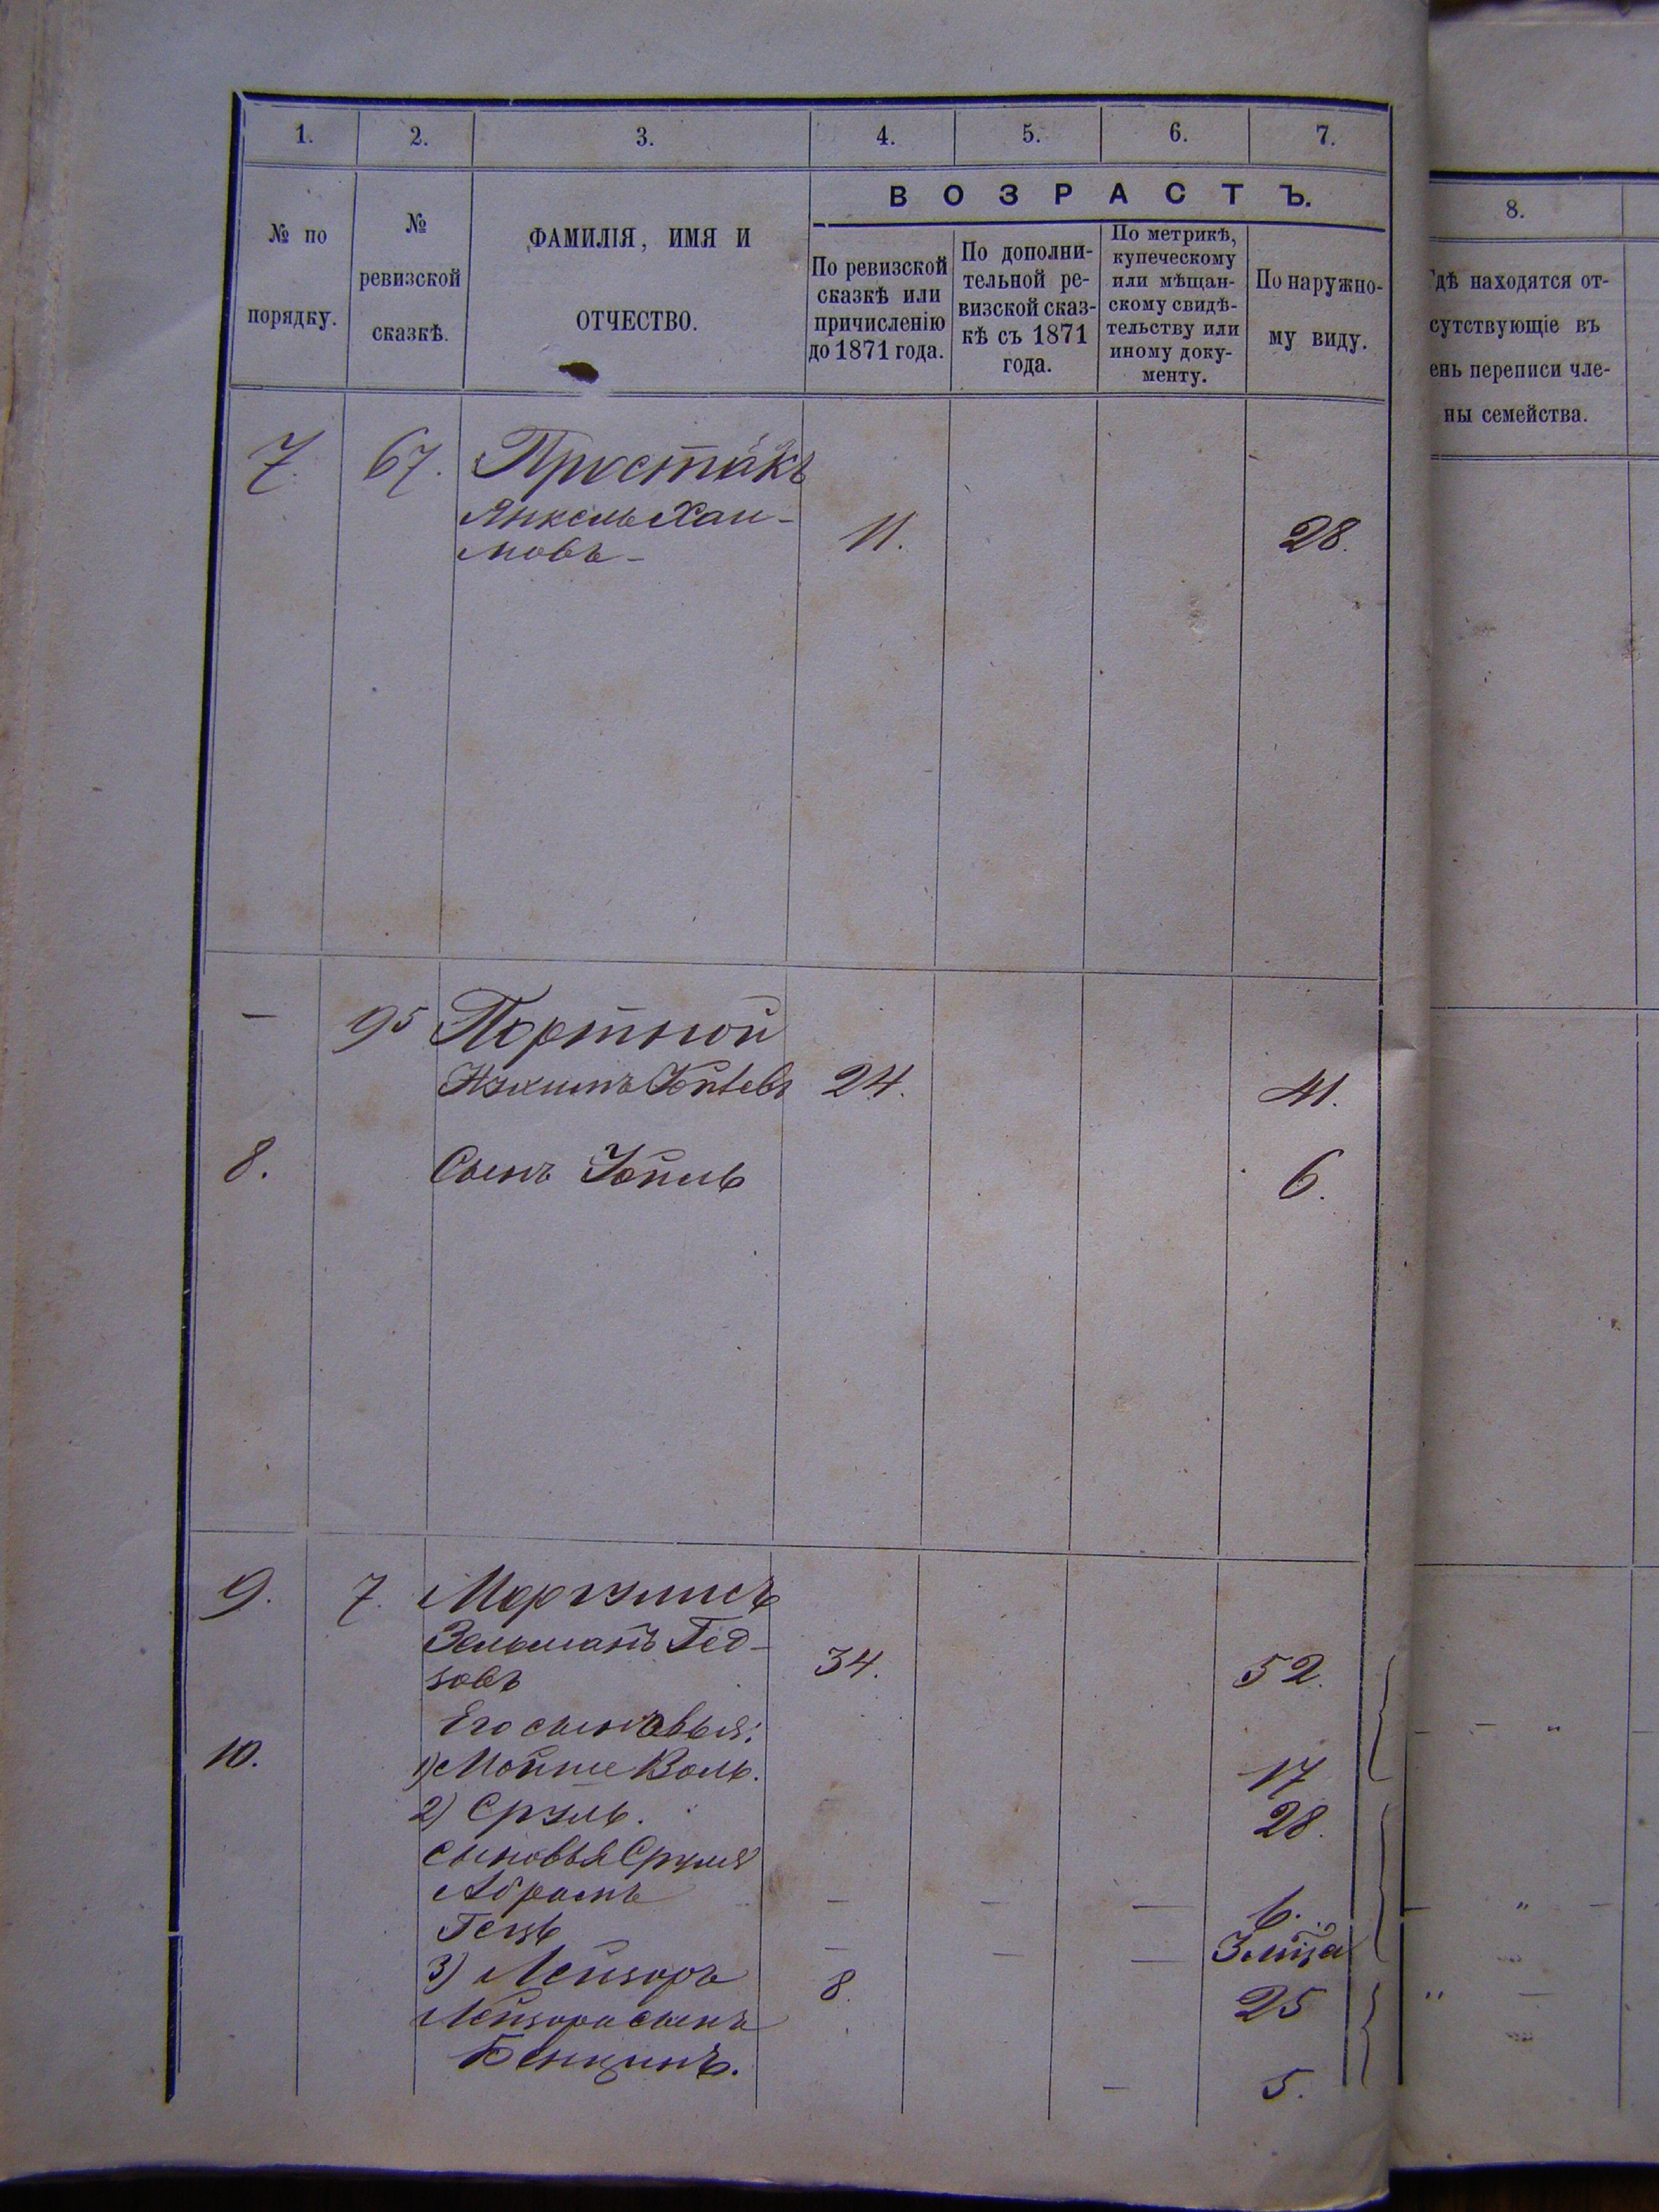 1. 2. 3. 4. 5. 6. 7.
№ по порядку.
№ ревизской сказкѣ.
ФАМИЛІЯ, ИМЯ И ОТЧЕСТВО.
ВОЗРАСТЪ.
По ревизской сказкѣ или причисленію до 1871 года.
По дополни-
тельной ре-
визской сказ-
кѣ съ 1871
года.
По метрикѣ,
купеческому
или мѣщан-
скому свидѣ-
тельству или
иному доку-
менту.
По наружно-
му виду.
8.
гдѣ находятся от-
сутствующіе въ
ень переписи чле-
ны семейства.
7. 67. Простакъ
Янкель Хаи-
мовъ 11. 28.
— 95 Портной
Нухимъ Іойлевъ 24. 41.
8. Сынъ Іойль 6.
9. 7. Моргулисъ
Зельманъ Гед-
зовъ 34. 52.
Его сыновья:
10. 1) Мойше Воль. 17
2) Сруль. 28.
Сыновья Сруля
Абрамъ — — — 6.
Гецъ — — —
3) Лейзоръ 8. 25
Лейзора сынъ
Бенціинъ. — 5.